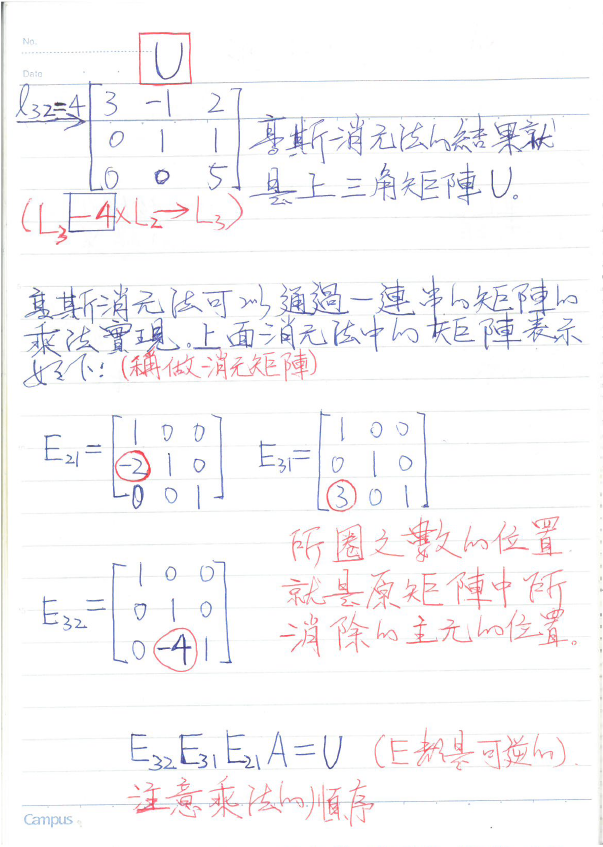 No.
Date
U
l32=4 [3 -1 2
0 1 1
0 0 5] 高斯消元法的結果就
是上三角矩陣U。
(L3 -4×L2→L3)
高斯消元法可以通過一連串的矩陣的
乘法實現。上面消元法中的矩陣表示
如下:(稱做消元矩陣)
E21= [1 0 0
-2 1 0
0 0 1]
E31= [1 0 0
0 1 0
3 0 1]
E32= [1 0 0
0 1 0
0 -4 1]
所圈之數的位置
就是原矩陣中所
消除的主元的位置。
E32E31E21A=U (E都是可逆的).
注意乘法的順序
Campus